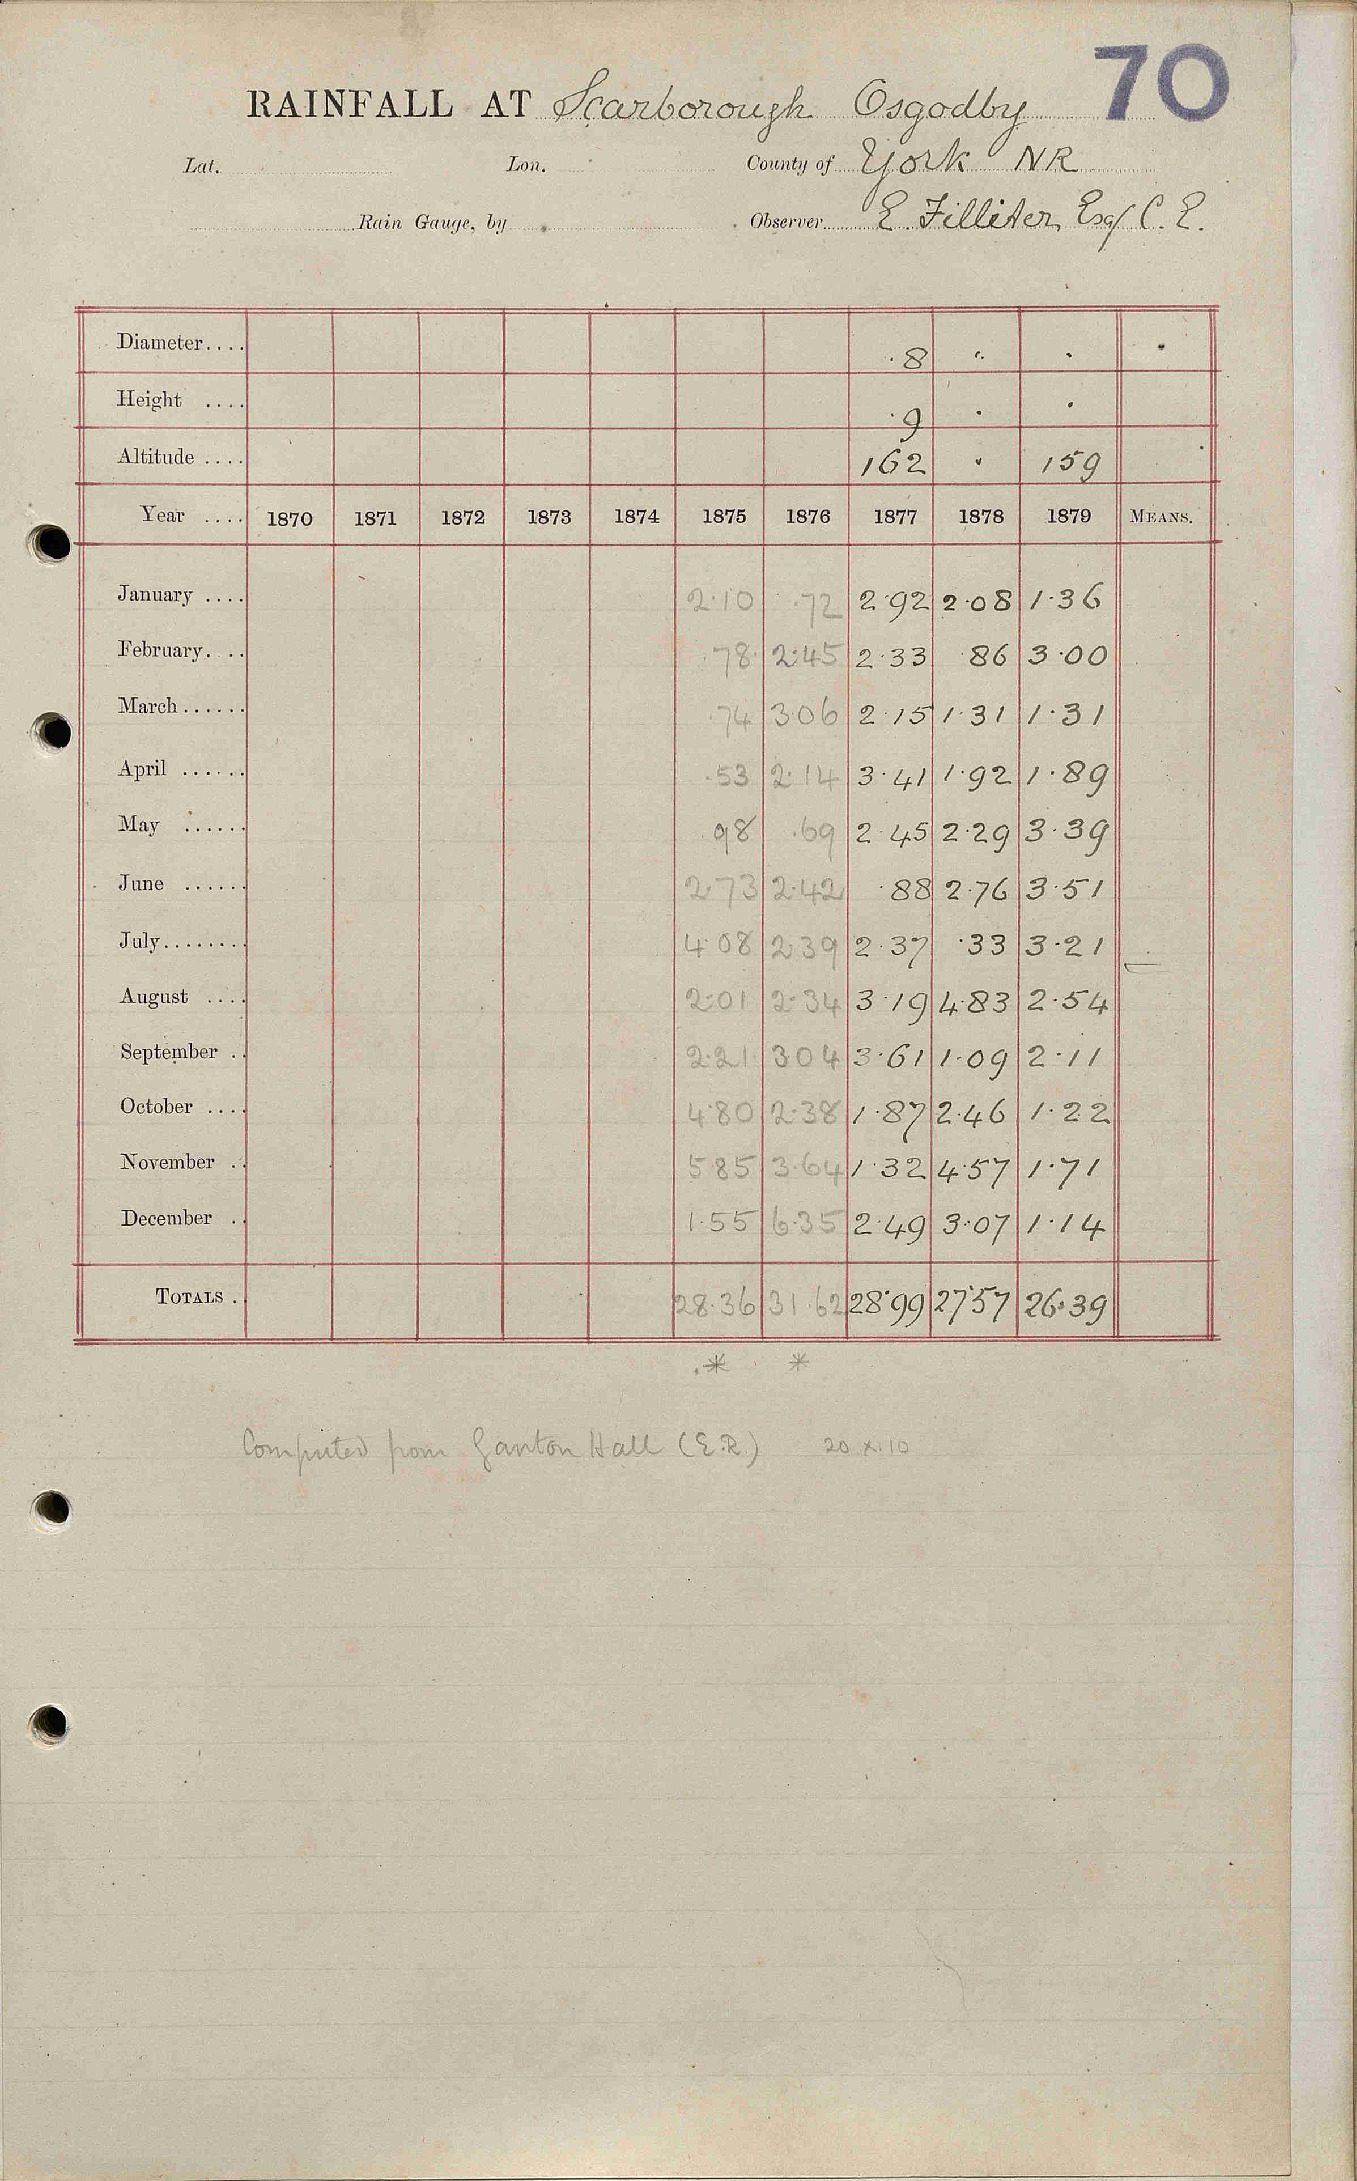 70
RAINFALL AT Scarborough Osgodby
Lat. Lon. County of York NR
Rain Gauge, by Observer E. Filliter, Esq C. E.
Diameter.... 8 "
Height .... 9
Altitude .... 162 " 159
Year .... 1870 1871 1872 1873 1874 1875 1876 1877 1878 1879 MEANS.
January .... 2.10 .72 2.92 2.08 1.36
February. .. .78 2.45 2.33 86 3.00
March ...... .74 3.06 2.15 1.31 1.31
April ...... .53 2.14 3.41 1.92 1.89
May ...... .98 .69 2.45 2.29 3.39
June ...... 2.73 2.42 .88 2.76 3.51
July........ 4.08 2.39 2.37 .33 3.21
August .... 2.01 2.34 3.19 4.83 2.54
September .. 2.21 3.04 3.61 1.09 2.11
October .... 4.80 2.38 1.87 2.46 1.22
November .. 5.85 3.64 1.32 4.57 1.71
December .. 1.55 6.35 2.49 3.07 1.14
TOTALS .. 28.36 31.62 28.99 27.57 26.39
* *
Computed from Ganton Hall (E.R.) 20.x.10